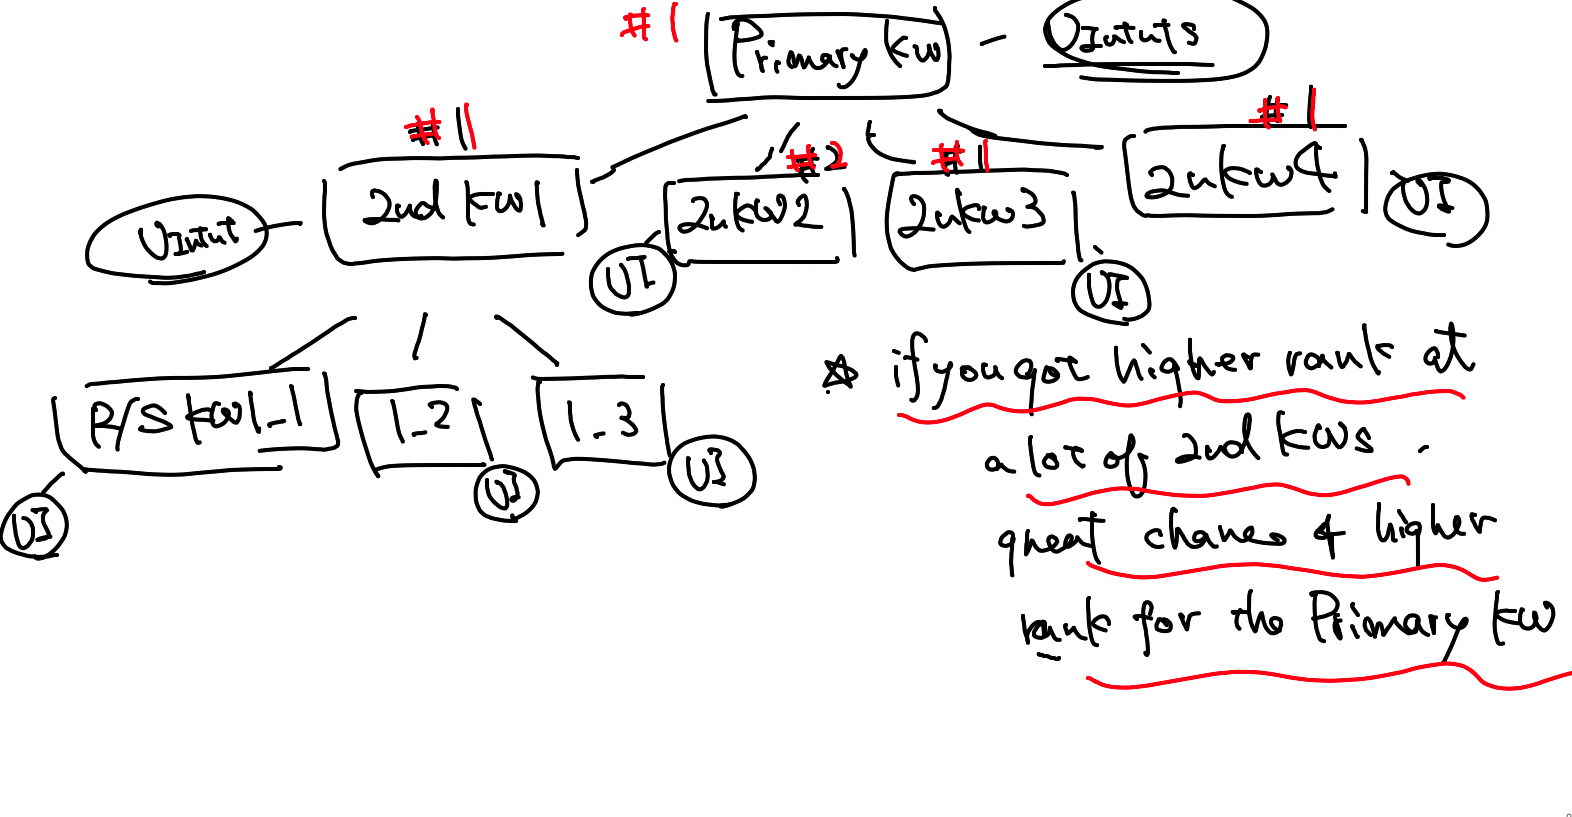 #1 Primary kw - UIntuts
#1 #2 #1 #1
2nd kw1 2nkw2 2nkw3 2nkw4
UIntut UI UI UI
R/S kw1_1 1_2 1_3
UI UI UI
☆ if you got higher rank at
a lot of 2nd kws .
great chances 4 higher
rank for the Primary kw